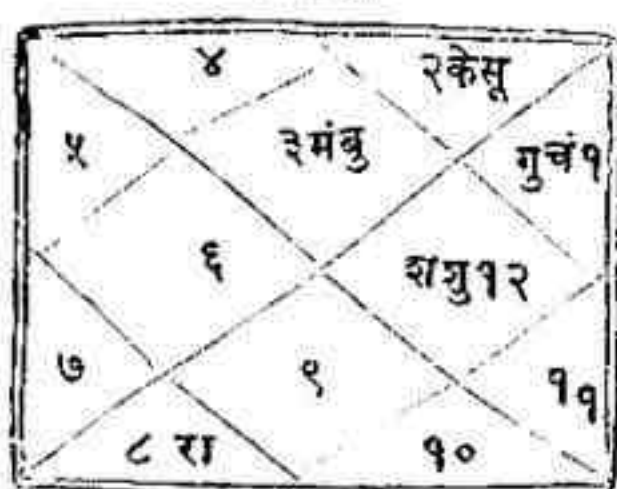 ४ २केसू
५ ३मंबु गुचं१
६ शशु१२
७ ९ ११
८ रा १०